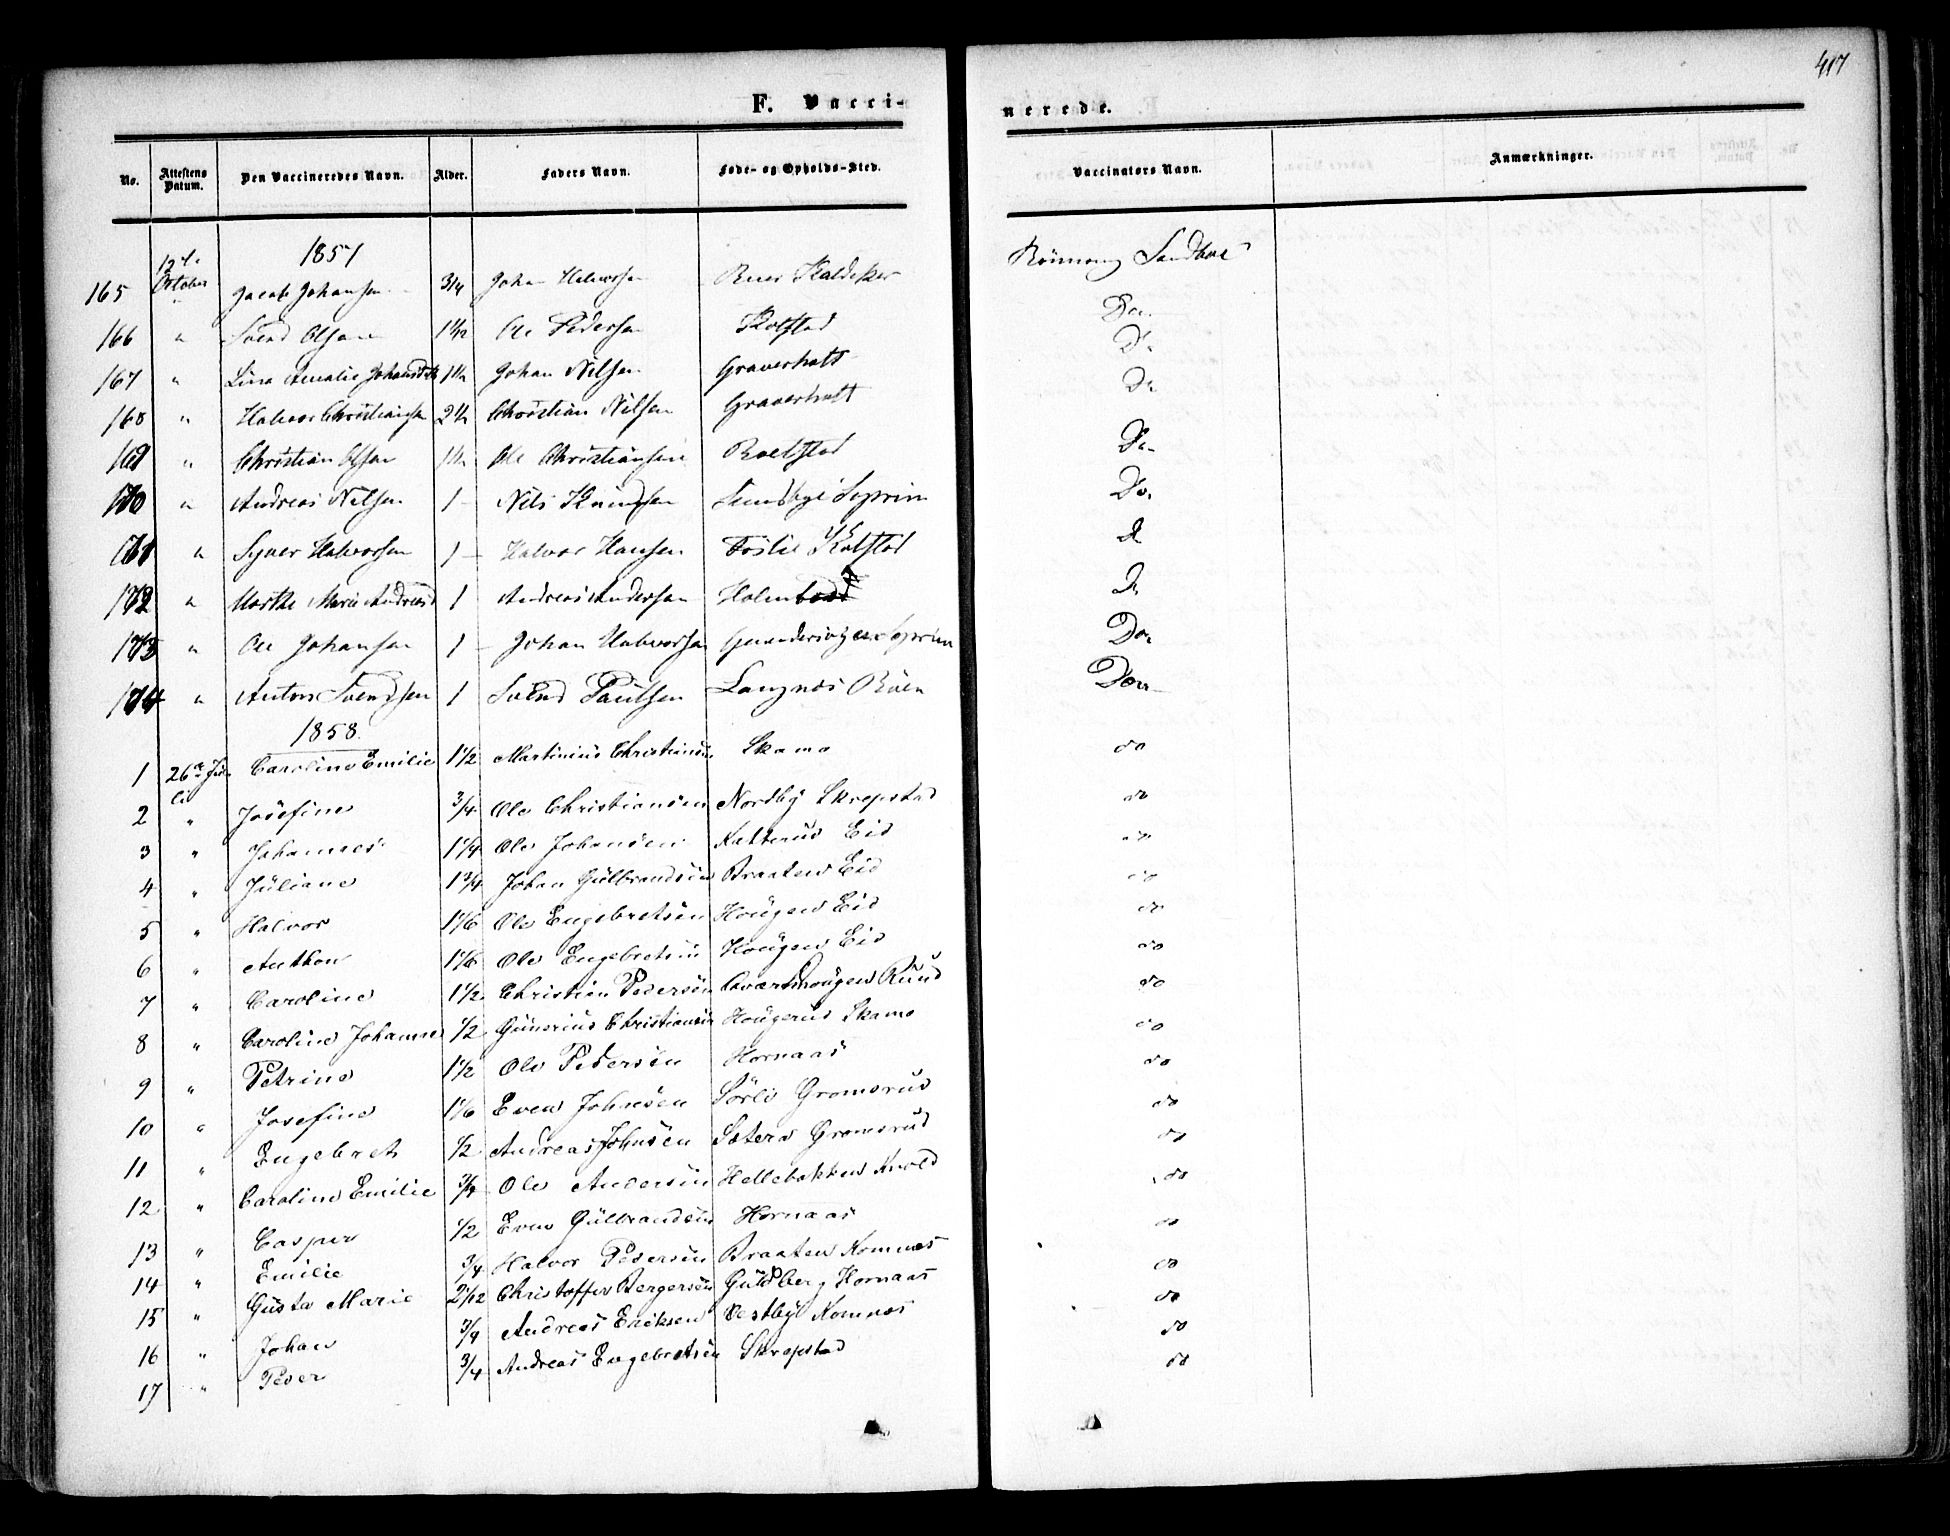 417
F. Vacci-
nerede.
No. Attestens Datum. Den Vaccineredes Navn. Alder. Faders Navn. Føde- og Opholds-Sted. Vaccinators Navn. Anmærkninger.
1857
165 12te October Jacob Johansen 3/4 Johan Halvorsen
166 " Svend Olsen Ole Pedersen Kolstad Do
167 " Lina Amalie Johansd 1 1/2 Johan Nilsen Graverholt Do
168 " Halvor Christiansen 2 1/2 Christian Nilsen Graverholt Do
169 " Christian Olsen 1 1/2 Ole Christiansen Do
170 " Andreas Nilsen 1 Nils Knudsen Do
171 " Syver Halvorsen 1 Halvor Hansen Kolstad Do
172 " Marthe Marie Andreasd 1 Andreas Andersen Do
173 " Ole Johansen 1 Johan Halvorsen Do
174 " Anton Svendsen 1 Svend Paulsen Langnes Do
1858
1 26de Juli Caroline Emilie 1 1/2 Martinius Christiansen Skamo do
2 " Josefine 3/4 Ole Christiansen Nordby Skrepstad do
3 " Johannes 1 1/4 Ole Johansen Katterud Eid do
4 " Juliane 1 3/4 Johan Gulbrandsen Braaten Eid do
5 " Halvor 1 1/6 Ole Engebretsen Hougen Eid do
6 " Anthon 1 1/6 Ole Engebretsen Hougen Eid do
7 " Caroline 1 1/2 Christian Pedersen Ruud do
8 " Caroline Johanne 1/2 Gunerius Christiansen Hougerud Skamo do
9 " Petrine 1 1/2 Ole Pedersen Hornaas do
10 " Josefine 1 1/6 Even Johnsen Sörli Gromsrud do
11 " Engebret 1/2 Andreas Johnsen Sætern Gromsrud do
12 " Caroline Emilie 3/4 Ole Andersen Hellebakken Kvold do
13 " Casper 1/2 Even Gulbrandsen Hornaas do
14 " Emilie 3/4 Halvor Pedersen Braaten Komnæs do
15 " Gusta Marie 2 1/12 Christoffer Bergersen Guldberg Hornaas do
16 " Johan 3/4 Andreas Eriksen Vestby Komnæs do
17 " Peder 3/4 Andreas Engebretsen Skrepstad do